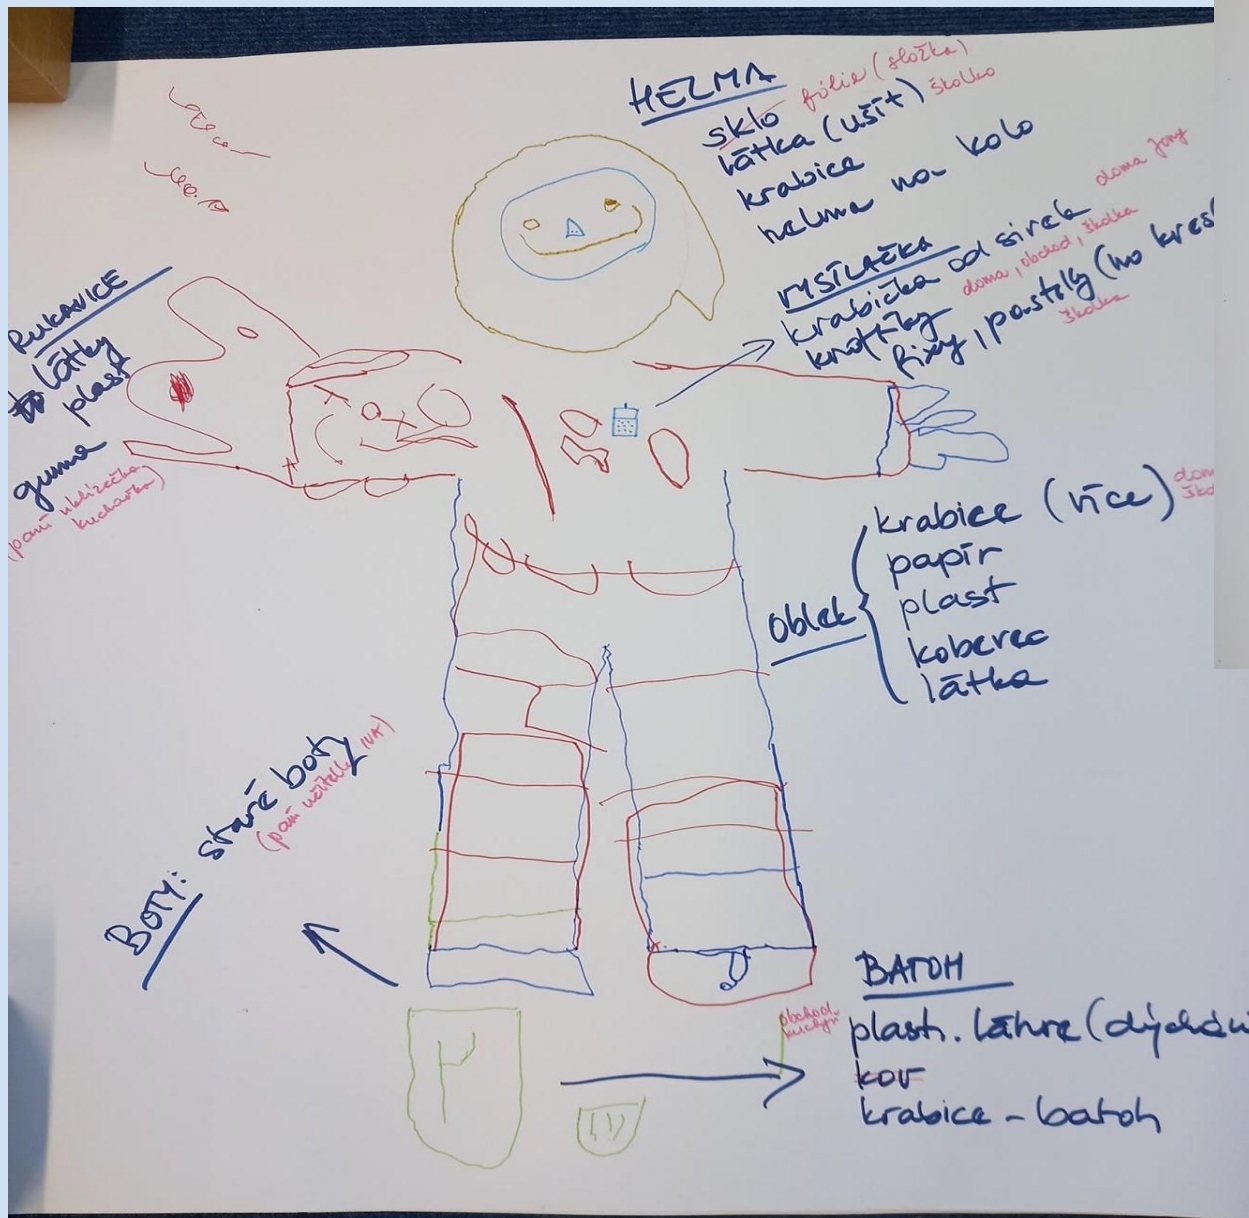 HELMA
sklo fólie (složka)
látka (ušít) školka
krabice
helma na kolo
VYSÍLAČKA
krabička od sirek doma
knoflíky doma, obchod, školka
fixy, pastely (na
školka
RUKAVICE
látky
plast
guma
(paní uklízečka,
kuchařka)
oblek
krabice (více)
papír
plast
koberec
látka
BOTY: staré boty
(paní učitelky IVA)
BATOH
obchod
kuchyň
plast. láhve (dýchání
kov
krabice - batoh